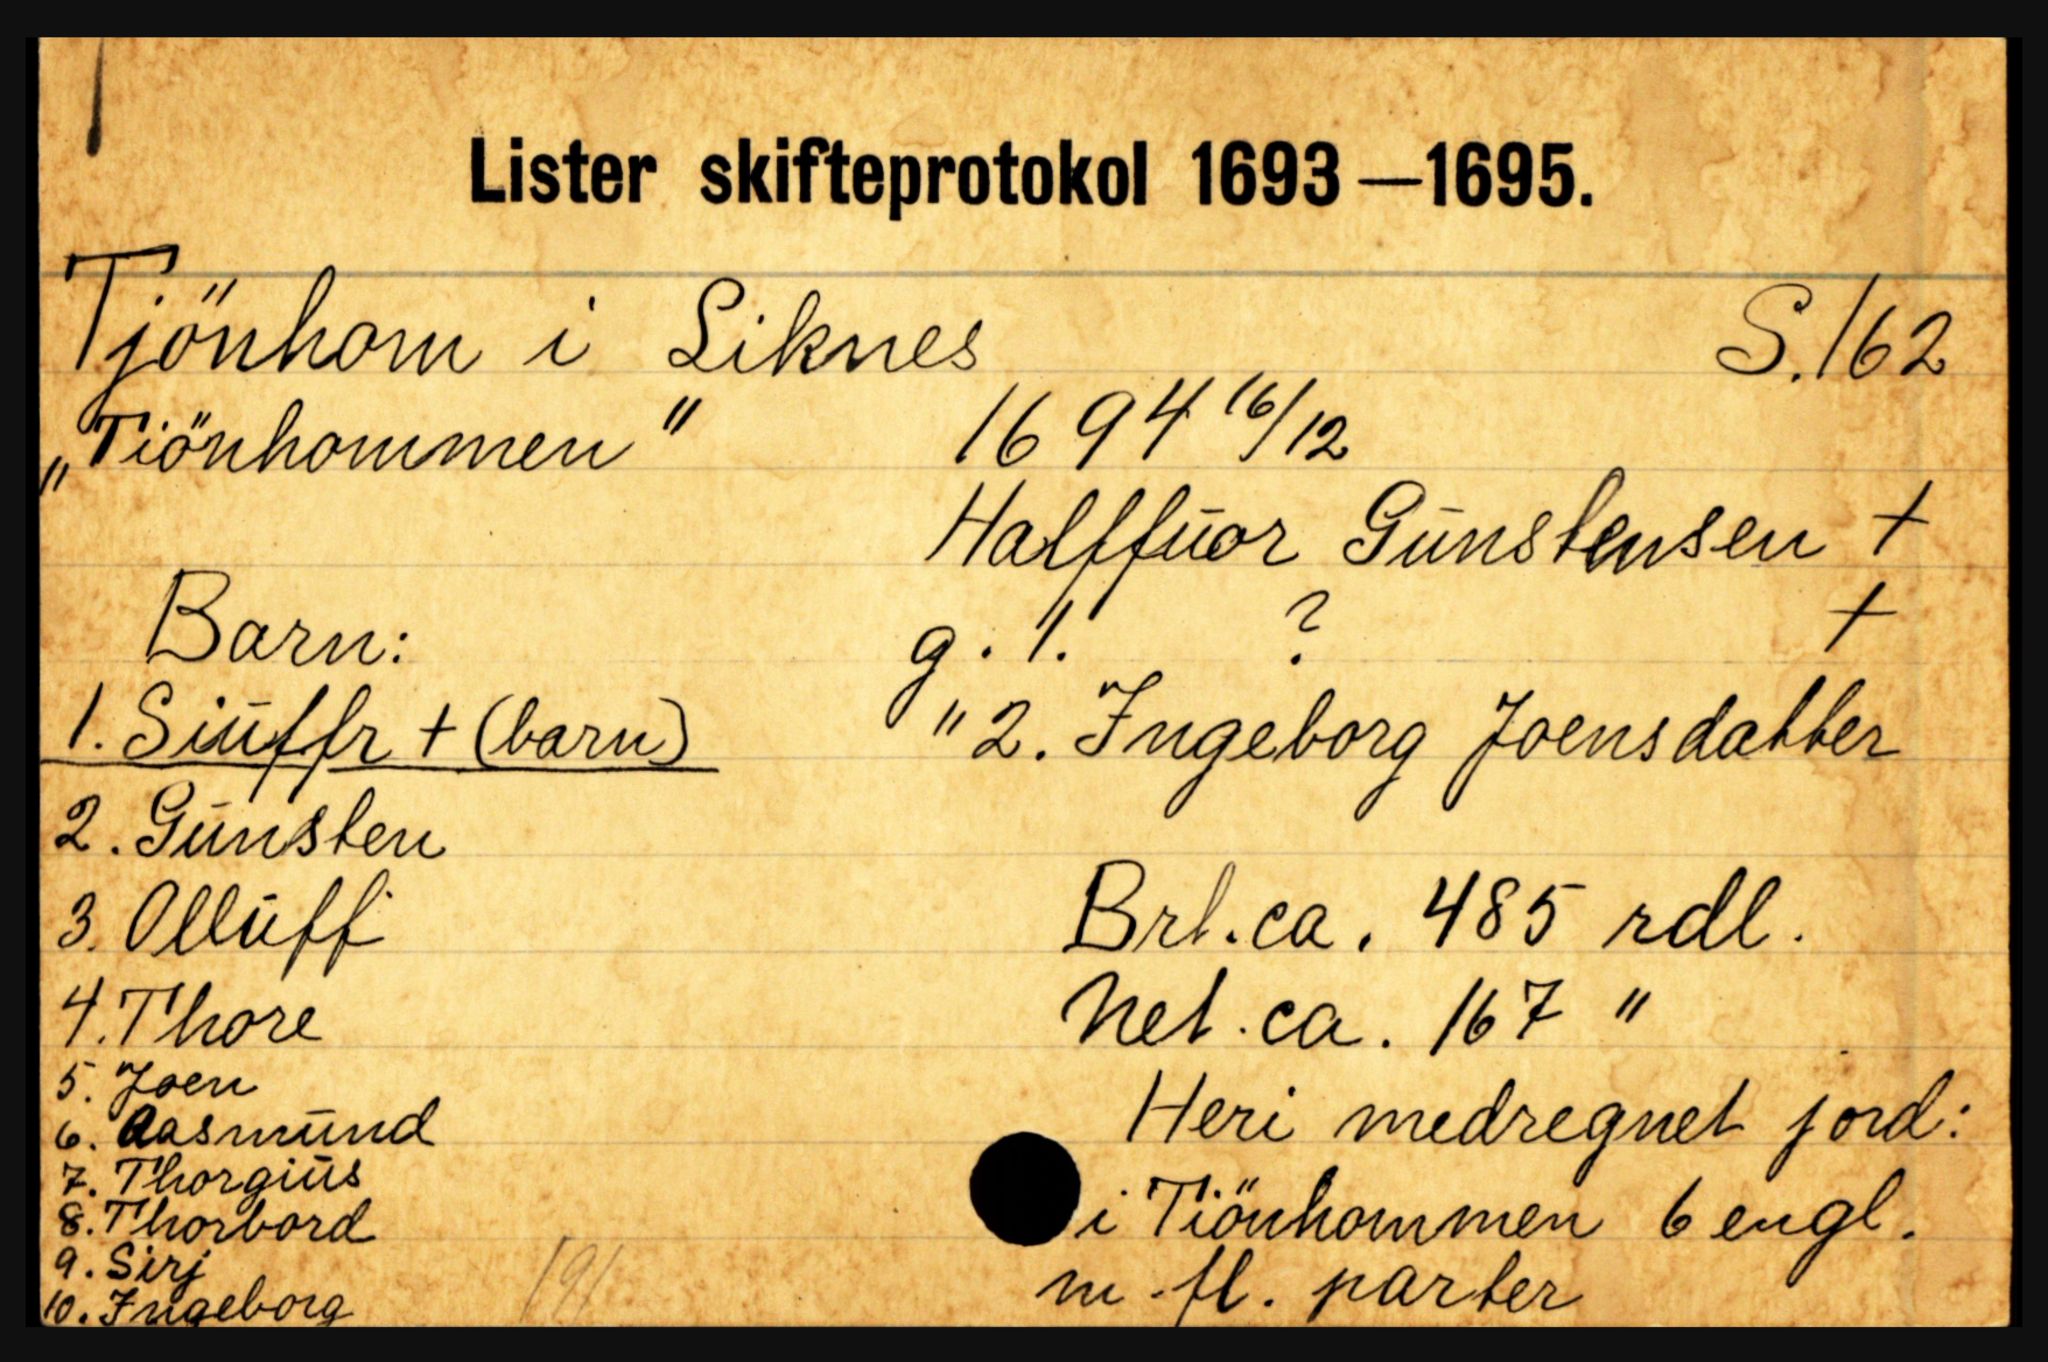 Lister skifteprotokol 1693—1695.
Tjönhom i Liknes S. 162
„Tiönhommen" 1694 16/12
Halffŭor Gŭnstensen +
Barn: g. 1. ? +
1. Siŭffr + (barn) " 2. Ingeborg Joensdatter
2. Gŭnsten
3. Ollŭff Brt. ca. 485 rdl.
4. Thore Net. ca. 167 "
5. Joen
6. Aasmŭnd Heri medregnet jord:
7. Thorgiŭs
8. Thorbord i Tiönhommen 6 engl.
9. Sirj
10. Ingeborg 191 m. fl. parter